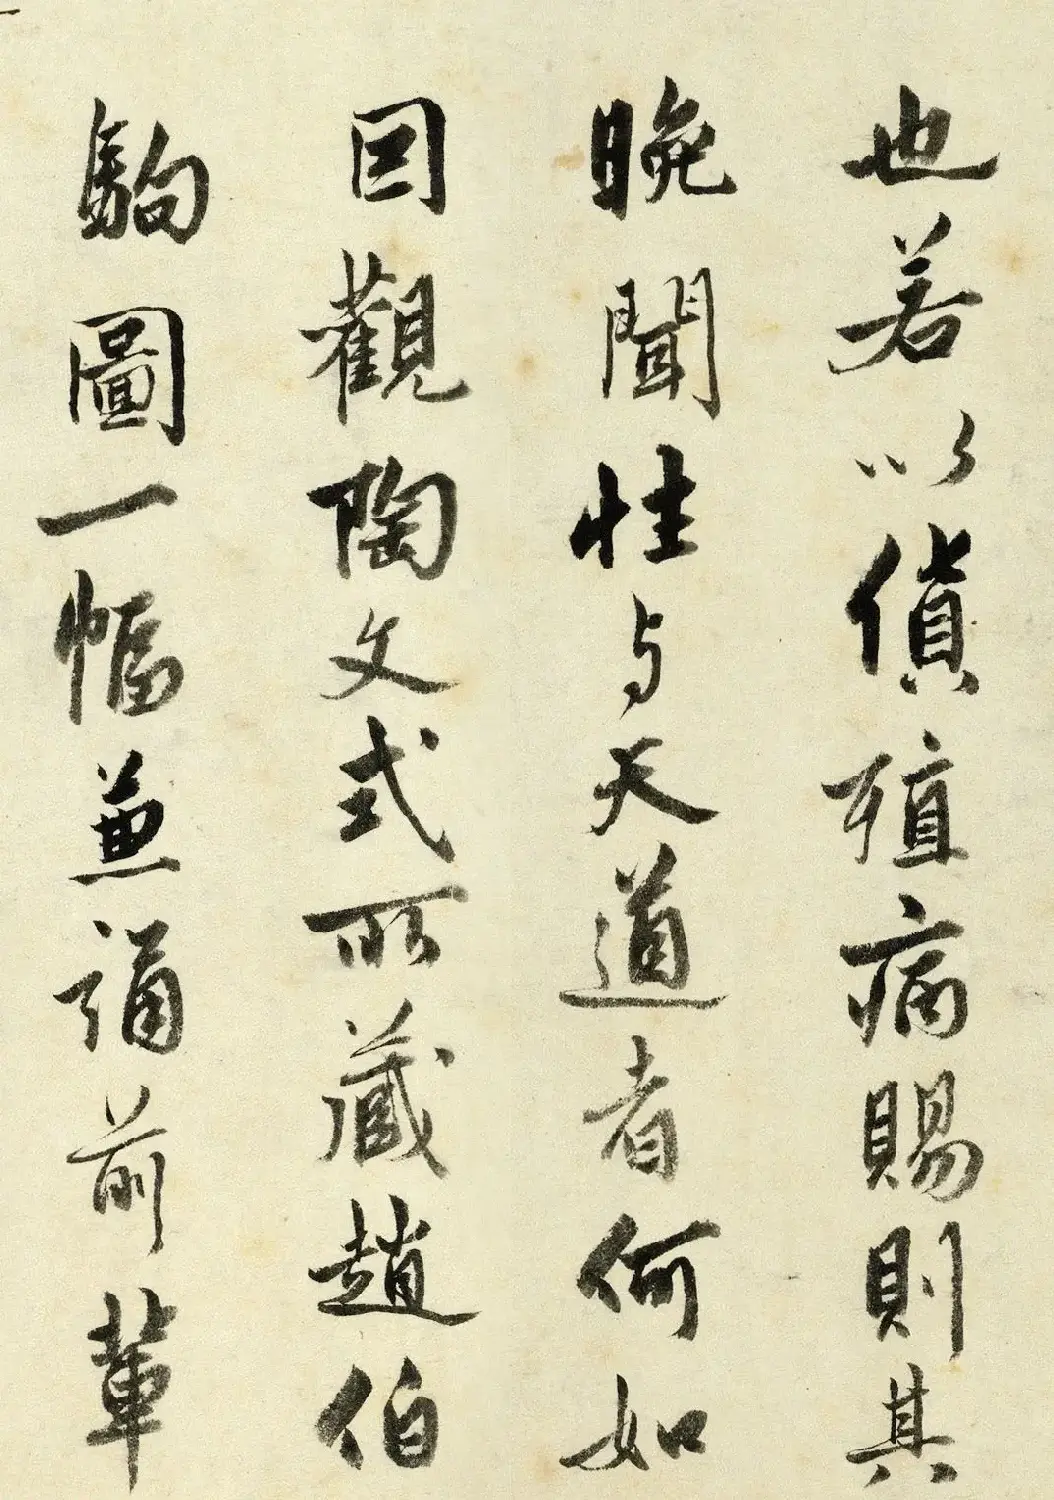 也若以貨殖病賜則其
晚聞性与天道者何如
因觀陶文式所藏趙伯
駒圖一幅兼誦前輩